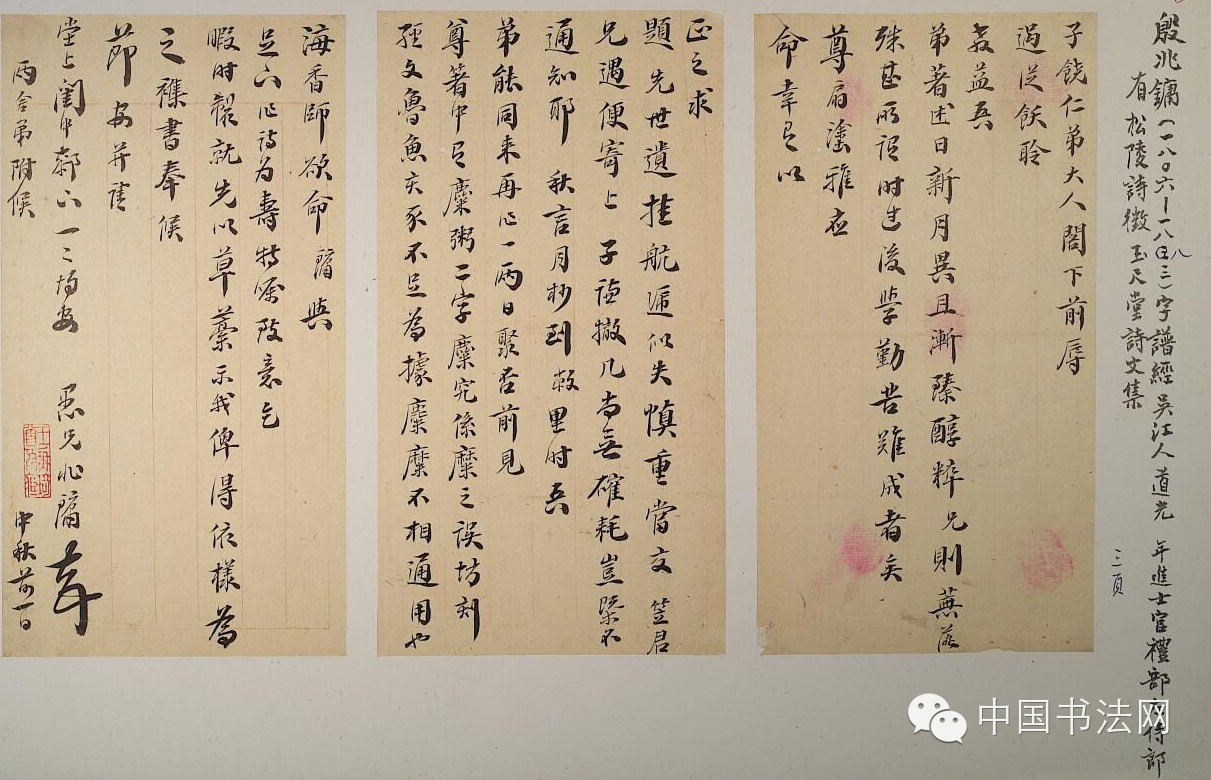 殷兆鏞（一八〇六－一八八三）字譜經吳江人道光　年進士官禮部 侍郎
有松陵詩徵玉尺堂詩文集
三頁
子饒仁弟大人閣下前辱
過從飫聆
教益吾
弟著述日新月異且漸臻醇粹兄則蕪
殊甚所謂時過後學勤苦難成者矣
尊扇塗雅應
命幸有以
正之求
題先世遺挂航遞似失慎重當交笠君
兄遇便寄上子謙撤几尚無確耗豈 不
通知耶秋言月杪到敝里時吾
弟能同來再作一兩日聚否前見
尊著中有糜粥二字糜究係糜之誤坊刻
經文魯魚亥豕不足為據糜糜不相通用也
海香師欲命鏞與
足下作詩為壽特囑致意乞
暇時製就先以草藁示我俾得依樣為
之襍書奉候
節安并請
堂上閨中郝下一二均安　愚兄兆鏞
兩舍弟附候
中秋前一日
中国书法网